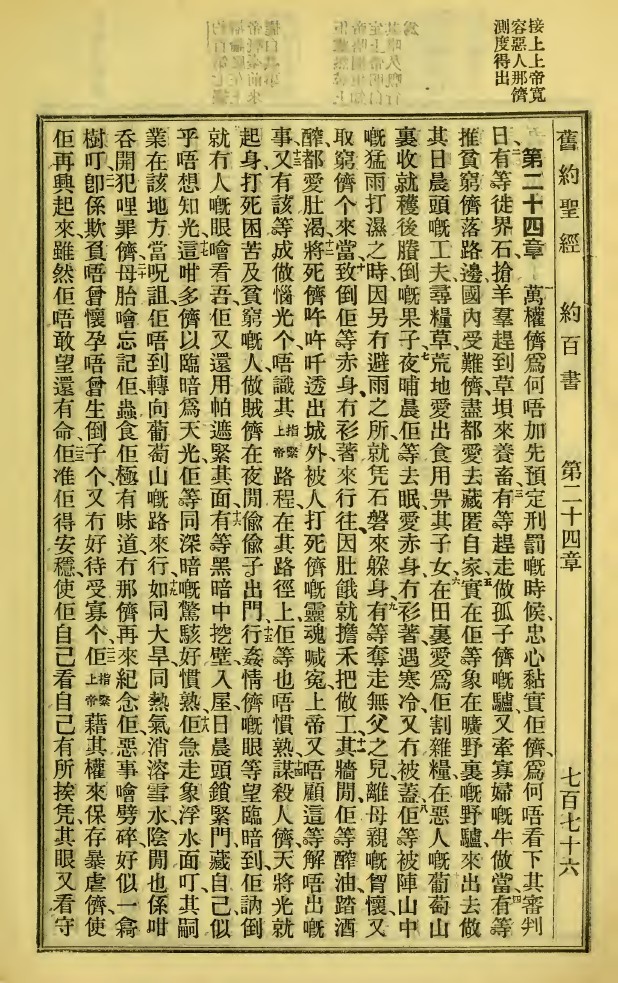 接上上帝寬
容惡人那儕
測度得出
舊約聖經 約百書 第二十四章 七百七十六
第二十四章 萬權儕爲何唔加先預定刑罰嘅時候、忠心黏實佢儕、爲何唔看下其審判
日、有等徙界石、搶羊羣趕到草垻來養畜、有等趕走做孤子儕嘅驢、又牽寡婦嘅牛做當、有等
推貧窮儕落路邊、國內受難儕、盡都愛去藏匿自家、實在佢等象在曠野裏嘅野驢、來出去做
其日晨頭嘅工夫、尋糧草、荒地愛出食用畀其子女、在田裏愛爲佢割雜糧、在惡人嘅葡萄山
裏收就穫後賸倒嘅果子、夜晡晨佢等去眠、愛赤身冇衫著、遇寒冷又冇被蓋、佢等被陣山中
嘅猛雨打濕之時、因另冇避雨之所、就凭石磐來躲身、有等奪走無父之兒離母親嘅胷懷、又
取窮儕个來當、致倒佢等赤身冇衫著來行往、因肚餓就擔禾把做工、其牆閒佢等醡油、踏酒
醡、都愛肚渴、將死儕吽吽吀透出城外、被人打死儕嘅靈魂喊寃、上帝又唔顧這等解唔出嘅
事、又有該等成做惱光个、唔識其指緊上帝路程、在其路徑上佢等也唔慣熟、謀殺人儕天將光就
起身、打死困苦及貧窮嘅人、做賊儕在夜閒偷偷子出門、行姦情儕嘅眼等望臨暗到、佢訥倒
就冇人嘅眼噲看吾、佢又還用帕遮緊其面、有等黑暗中挖壁入屋、日晨頭鎖緊門、藏自己、似
乎唔想知光、這咁多儕以臨暗爲天光、佢等同深暗嘅驚駭好慣熟、佢急走象浮水面叮、其嗣
業在該地方當呪詛、佢唔到轉向葡萄山嘅路來行、如同大旱同熱氣消溶雪水、陰閒也係咁
吞開犯哩罪儕、母胎噲忘記佢、蟲食佢極有味道、冇那儕再來紀念佢、惡事噲劈碎好似一翕
樹叮、卽係欺負唔曾懷孕唔曾生倒子个、又冇好待受寡个、佢指緊上帝藉其權來保存暴虐儕、使
佢再興起來、雖然佢唔敢望還有命、佢准佢得安穩、使佢自己看自己有所挨凭、其眼又看守